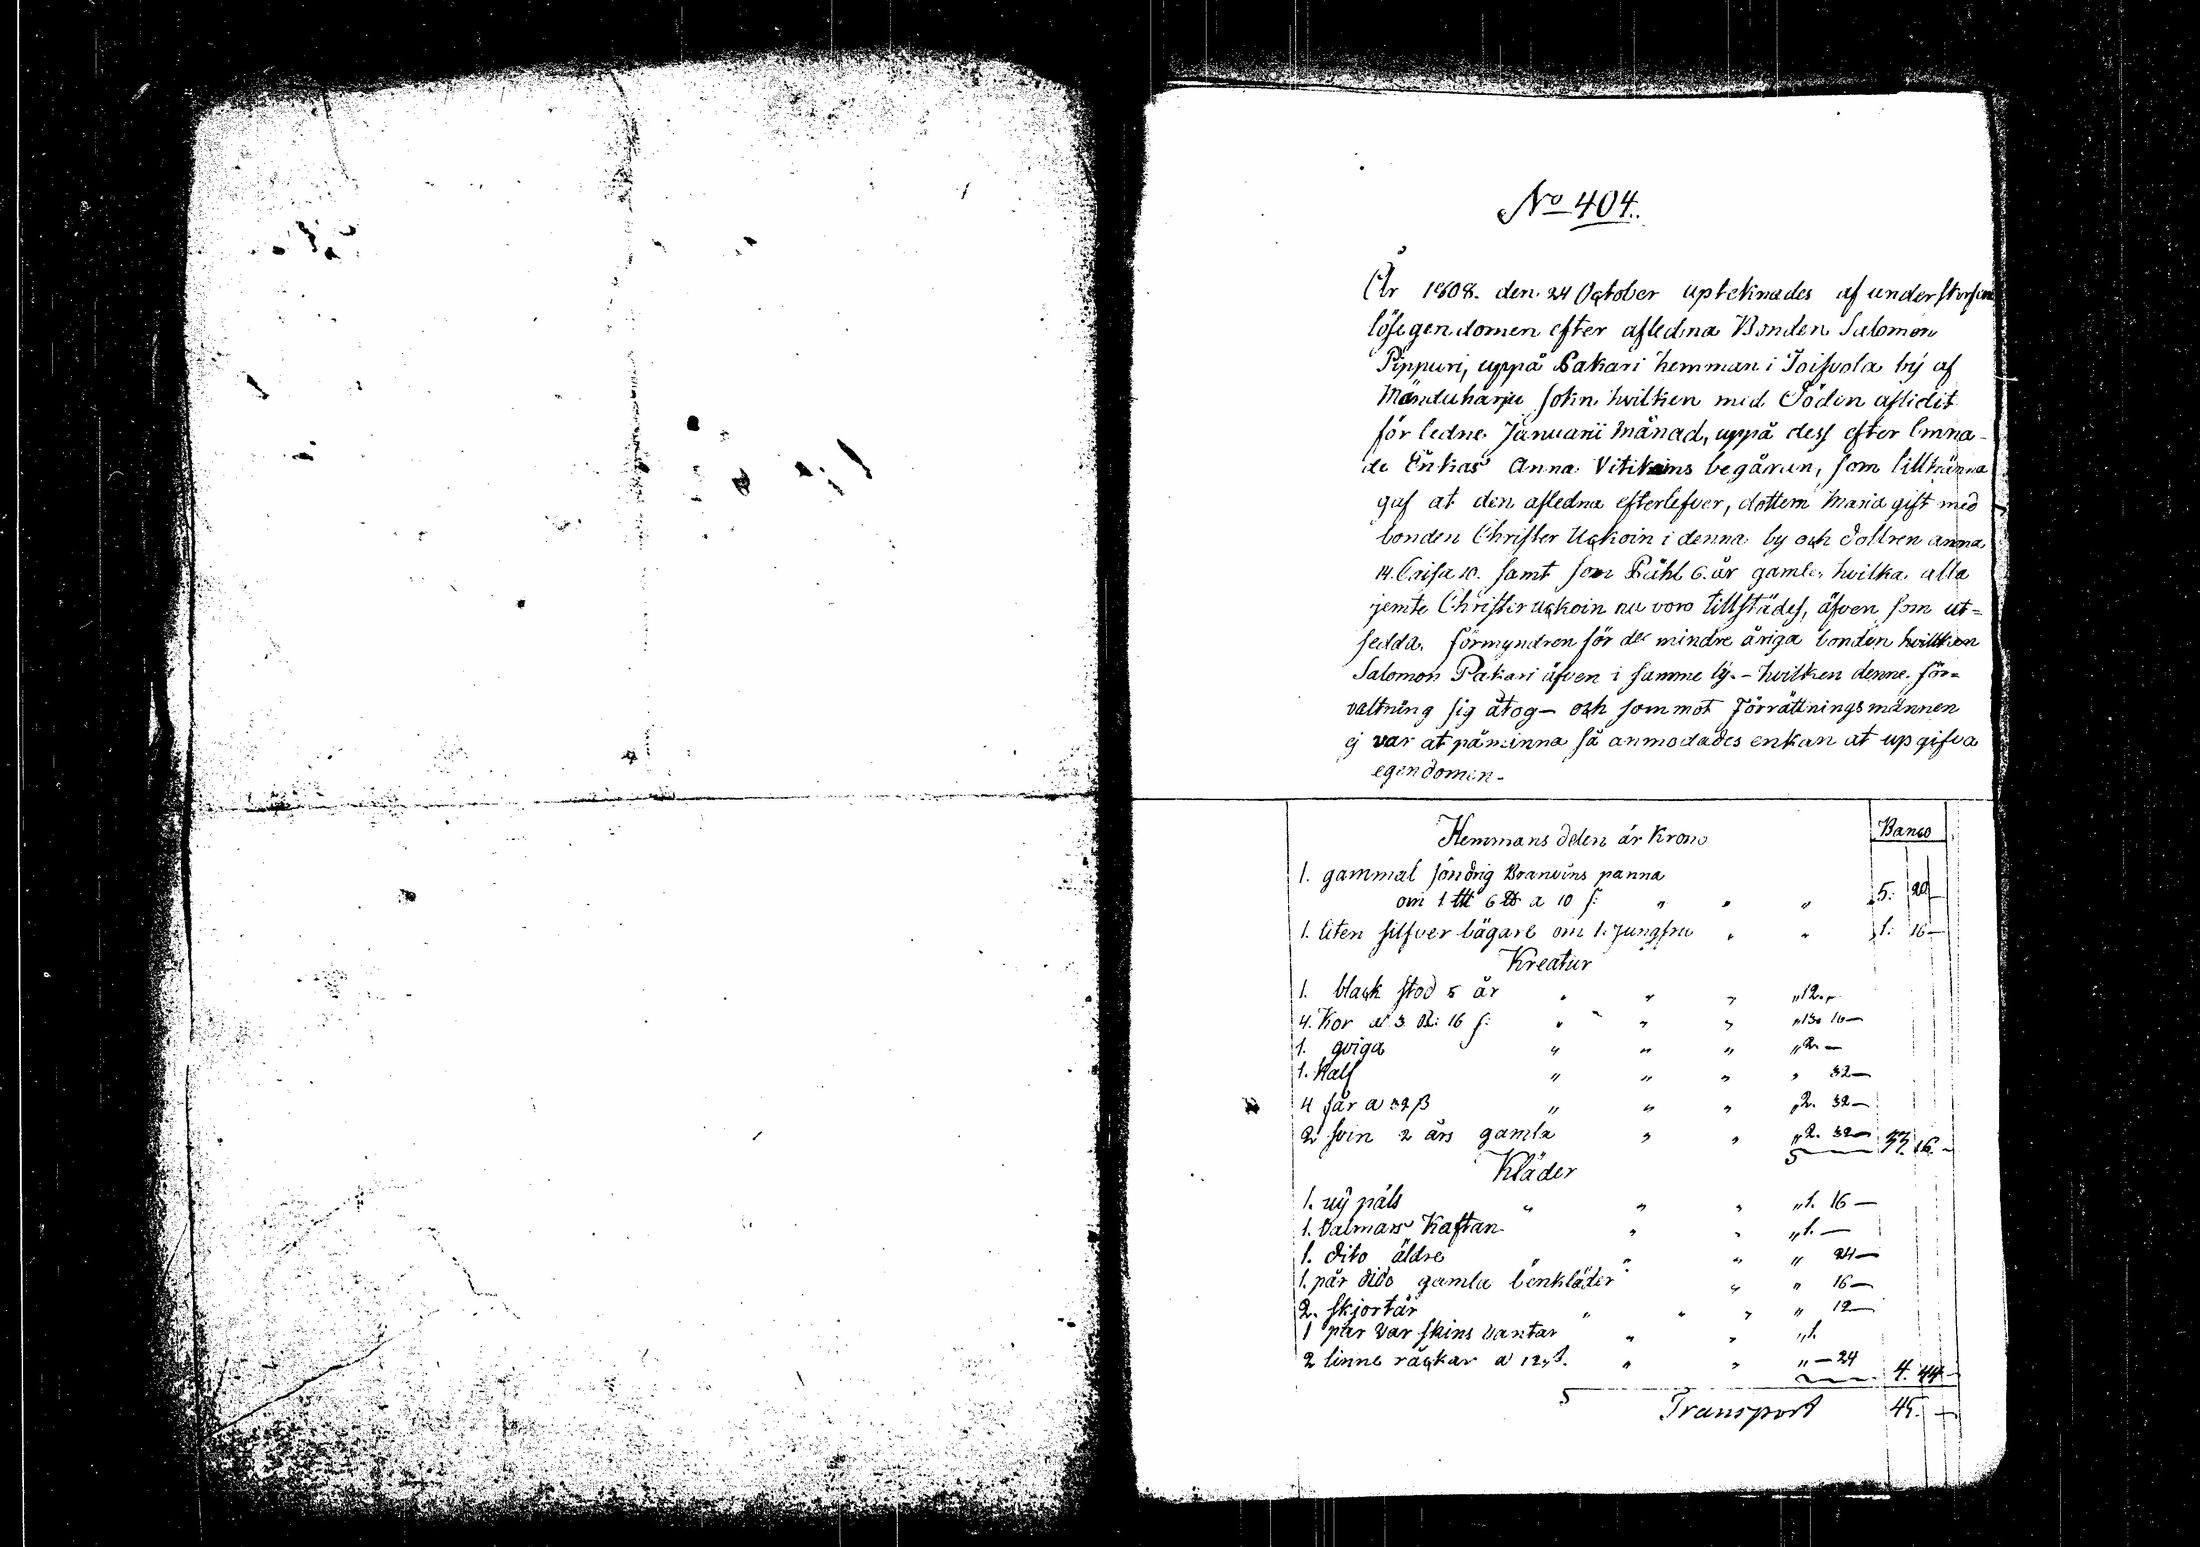 No 404.
År 1808. den 24 October upteknades af under
lösegendomen efter afledna Bonden Salomon
Pippuri, uppå Pakari hemman i Toifvola bÿ af
Mänduharju sokn hvilken med Döden aflidit
för ledne Januarii Månad, uppå dess efter lmna-
de Enkas Anna Vitikains begäran, som tillkänna
gaf at den afledna efterlefver, dottern Maria gift med
bonden Christer Uckoin i denna by och dottren anna
14. Caisa 10. samt son Påhl 6. år gamle, hvilka alla
jemte Christer uckoin nu voro tillstädes, äfven som ut=
sedda förmyndren för de mindre åriga bonden hvilken
Salomon Pakari äfven i samme bÿ.- hvilken denne för=
valtning sig åtog- och som mot Förrättningsmännen
ej var at påminna så anmodades enkan at up gifva
egendomen-
Hemmans delen är Krono
Banco
1. gammal söndrig Branvins panna
om 1 6 a 10 s: " " " 5: 20 —
1. liten silfver bägare om 1. jungfru " " 1: 16 —
Kreatur
1. black stod 5 år " " " " 12. "
4. Kor a 3 R: 16 s: " " " " 13. 16 —
1. qviga " " " " 2. —
1. Kalf " " " " 32 —
4 får a 32 β " " " " 2. 32 —
2 svin 2 års gamla " " " 2. 32 — 33. 16. —
Kläder
1. nÿ päls " " " " 1. 16 —
1. Valmars Kaftan " " " 1. —
1. dito äldre " " " " 24 —
1. pår dido gamla benkläder " " 16 —
2. skjortar " " " " 12 —
1 par Var skins vantar " " " 1.
2 linne räckar a 12 s. " " " — 24 4. 44 —
Transport 45. —